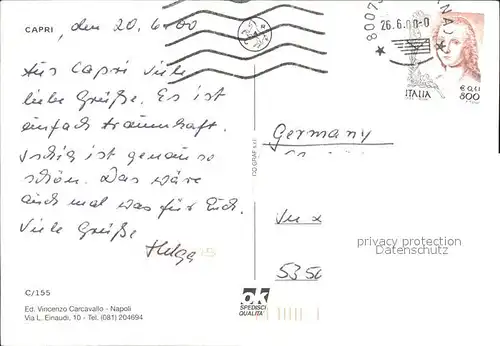 CAPRI, den 20.6.00
Aus Capri viele
liebe Grüße. Es ist
einfach traumhaft.
Ischia ist genau so
schön. Das wäre
auch mal was für Euch.
Viele Grüße
Helga
C/155
Ed. Vincenzo Carcavallo - Napoli
Via L. Einaudi, 10 - Tel. (081) 204694
OK
SPEDISCI
QUALITA'
26.6.00-0
ITALIA
€ 0,41
800
Germany
535
privacy protection
Datenschutz